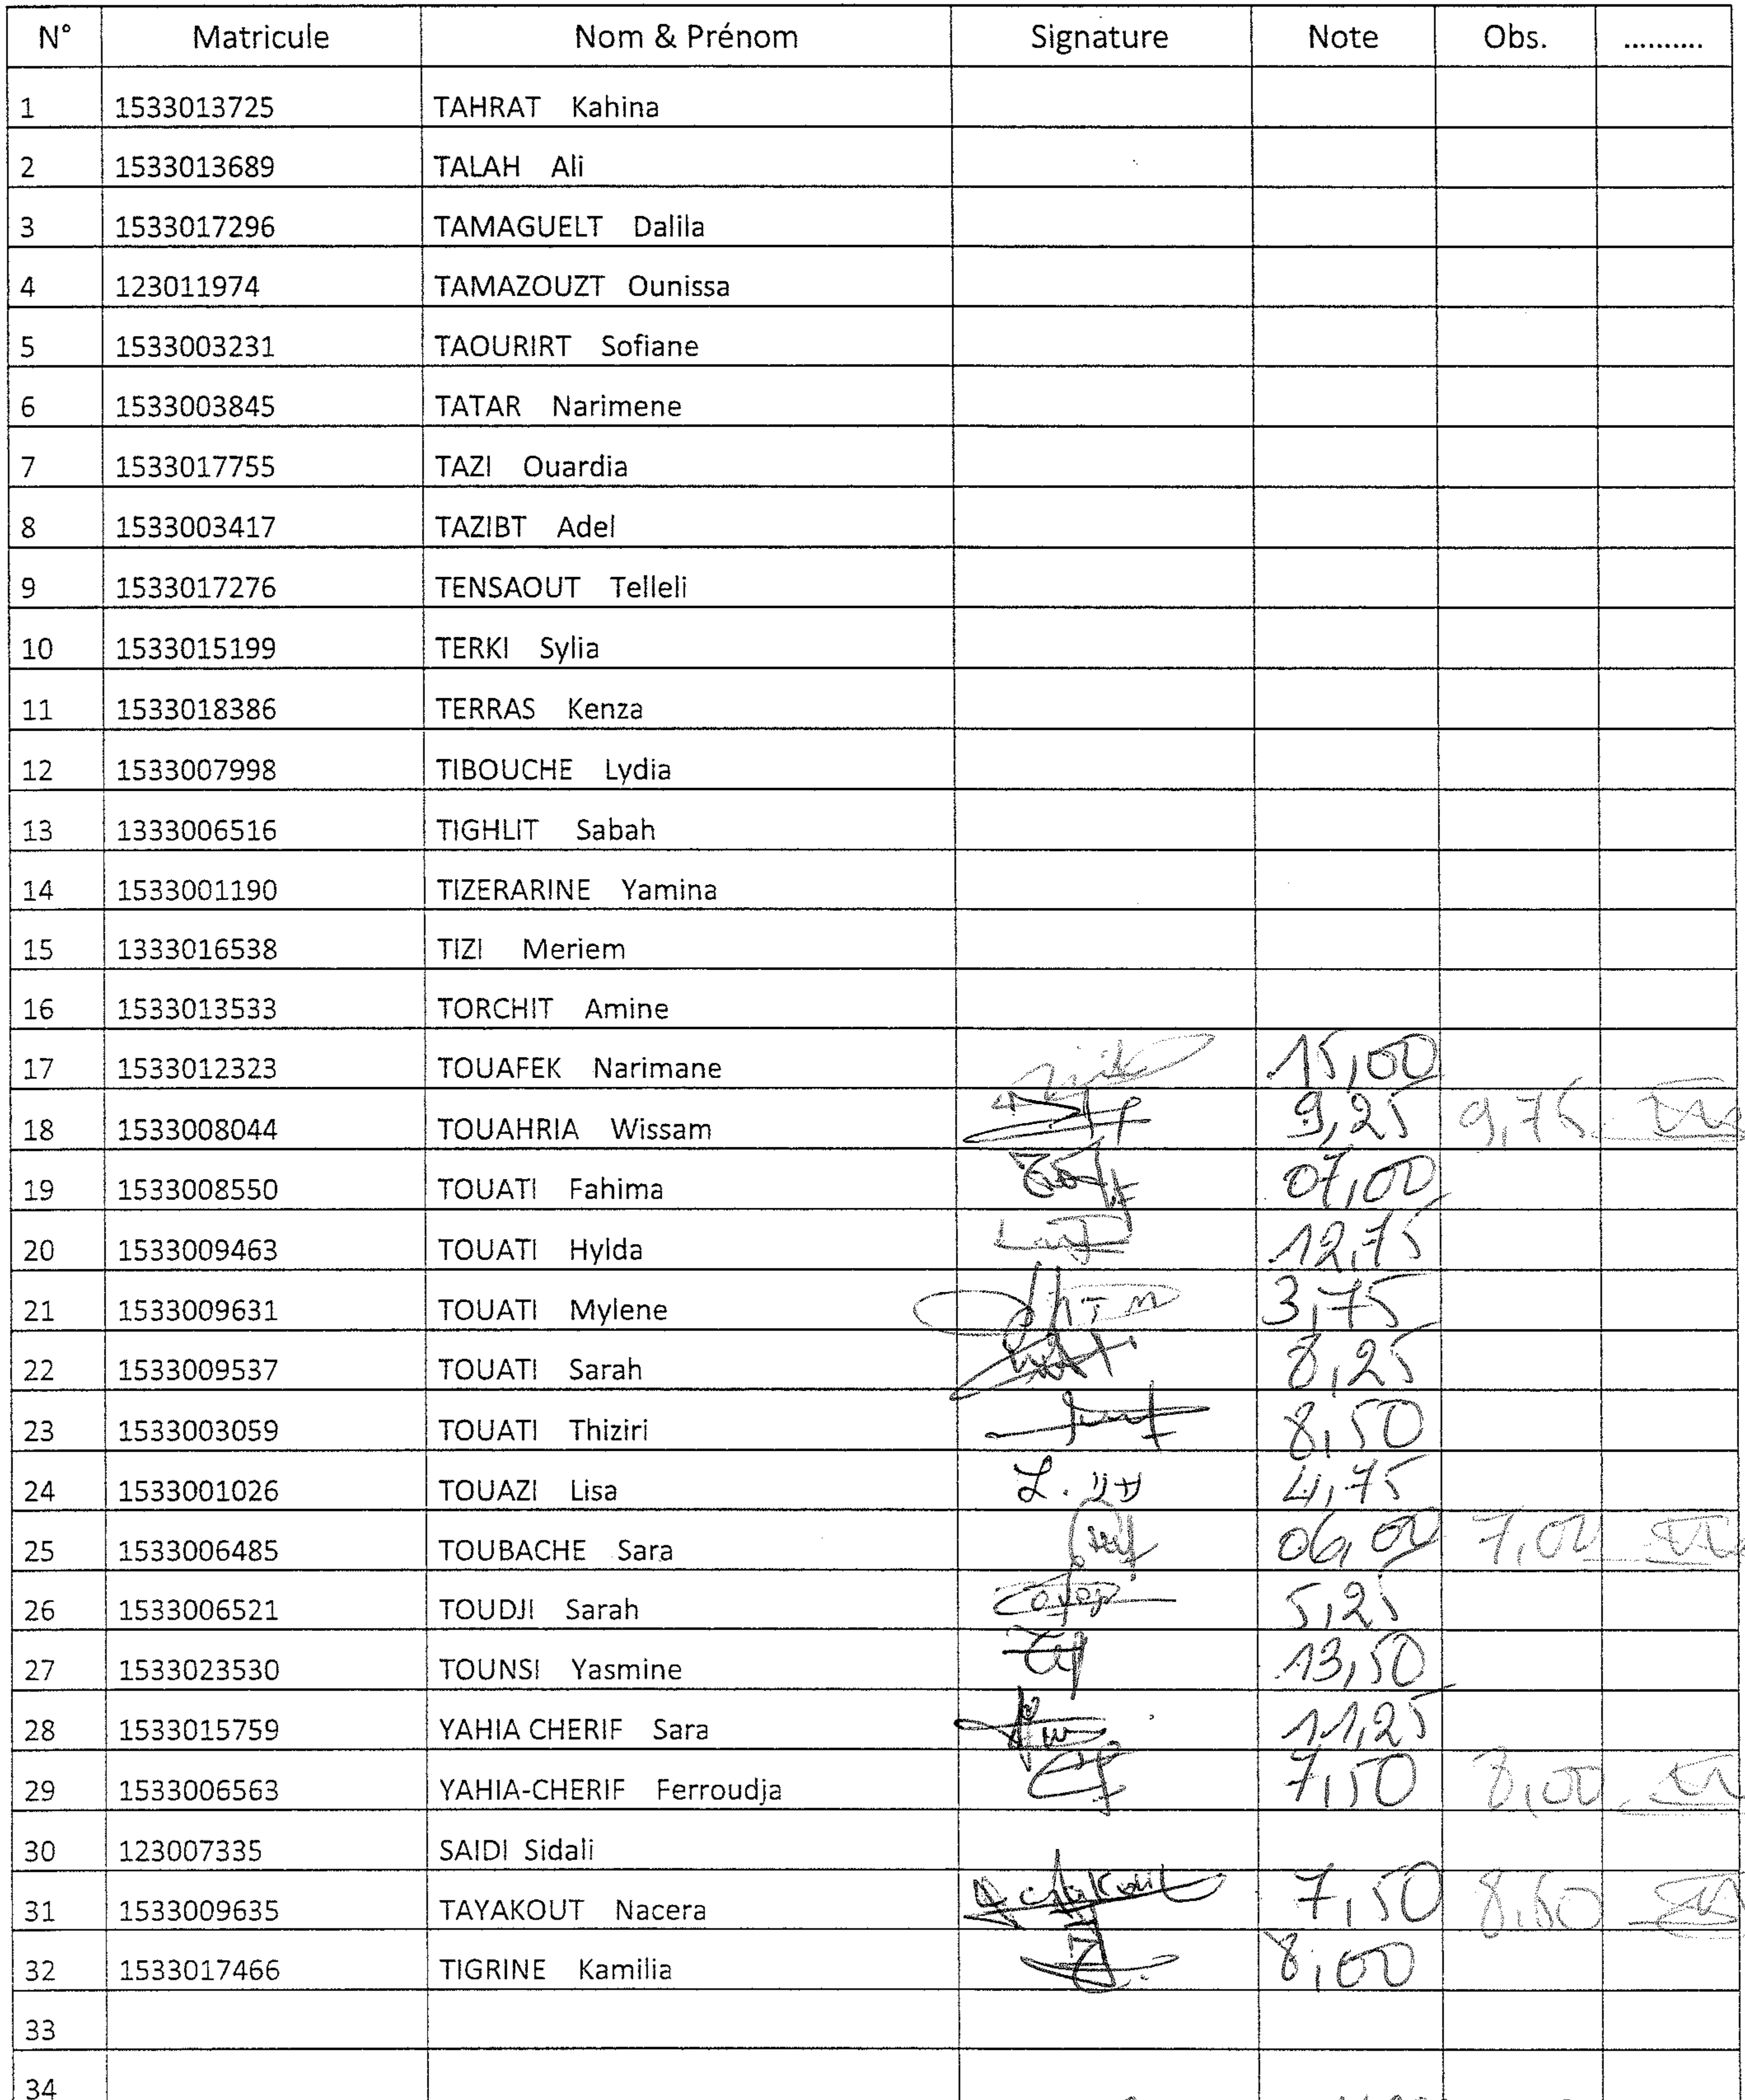 N° Matricule Nom & Prénom Signature Note Obs. ..........
1 1533013725 TAHRAT Kahina
2 1533013689 TALAH Ali
3 1533017296 TAMAGUELT Dalila
4 123011974 TAMAZOUZT Ounissa
5 1533003231 TAOURIRT Sofiane
6 1533003845 TATAR Narimene
7 1533017755 TAZI Ouardia
8 1533003417 TAZIBT Adel
9 1533017276 TENSAOUT Telleli
10 1533015199 TERKI Sylia
11 1533018386 TERRAS Kenza
12 1533007998 TIBOUCHE Lydia
13 1333006516 TIGHLIT Sabah
14 1533001190 TIZERARINE Yamina
15 1333016538 TIZI Meriem
16 1533013533 TORCHIT Amine
17 1533012323 TOUAFEK Narimane 15,00
18 1533008044 TOUAHRIA Wissam 9,25 9,75
19 1533008550 TOUATI Fahima 07,00
20 1533009463 TOUATI Hylda 12,75
21 1533009631 TOUATI Mylene 3,75
22 1533009537 TOUATI Sarah 8,25
23 1533003059 TOUATI Thiziri 8,50
24 1533001026 TOUAZI Lisa 4,75
25 1533006485 TOUBACHE Sara 06,00 7,00
26 1533006521 TOUDJI Sarah 5,25
27 1533023530 TOUNSI Yasmine 13,50
28 1533015759 YAHIA CHERIF Sara 11,25
29 1533006563 YAHIA-CHERIF Ferroudja 7,50 8,00
30 123007335 SAIDI Sidali
31 1533009635 TAYAKOUT Nacera 7,50 8,50
32 1533017466 TIGRINE Kamilia 8,00
33
34